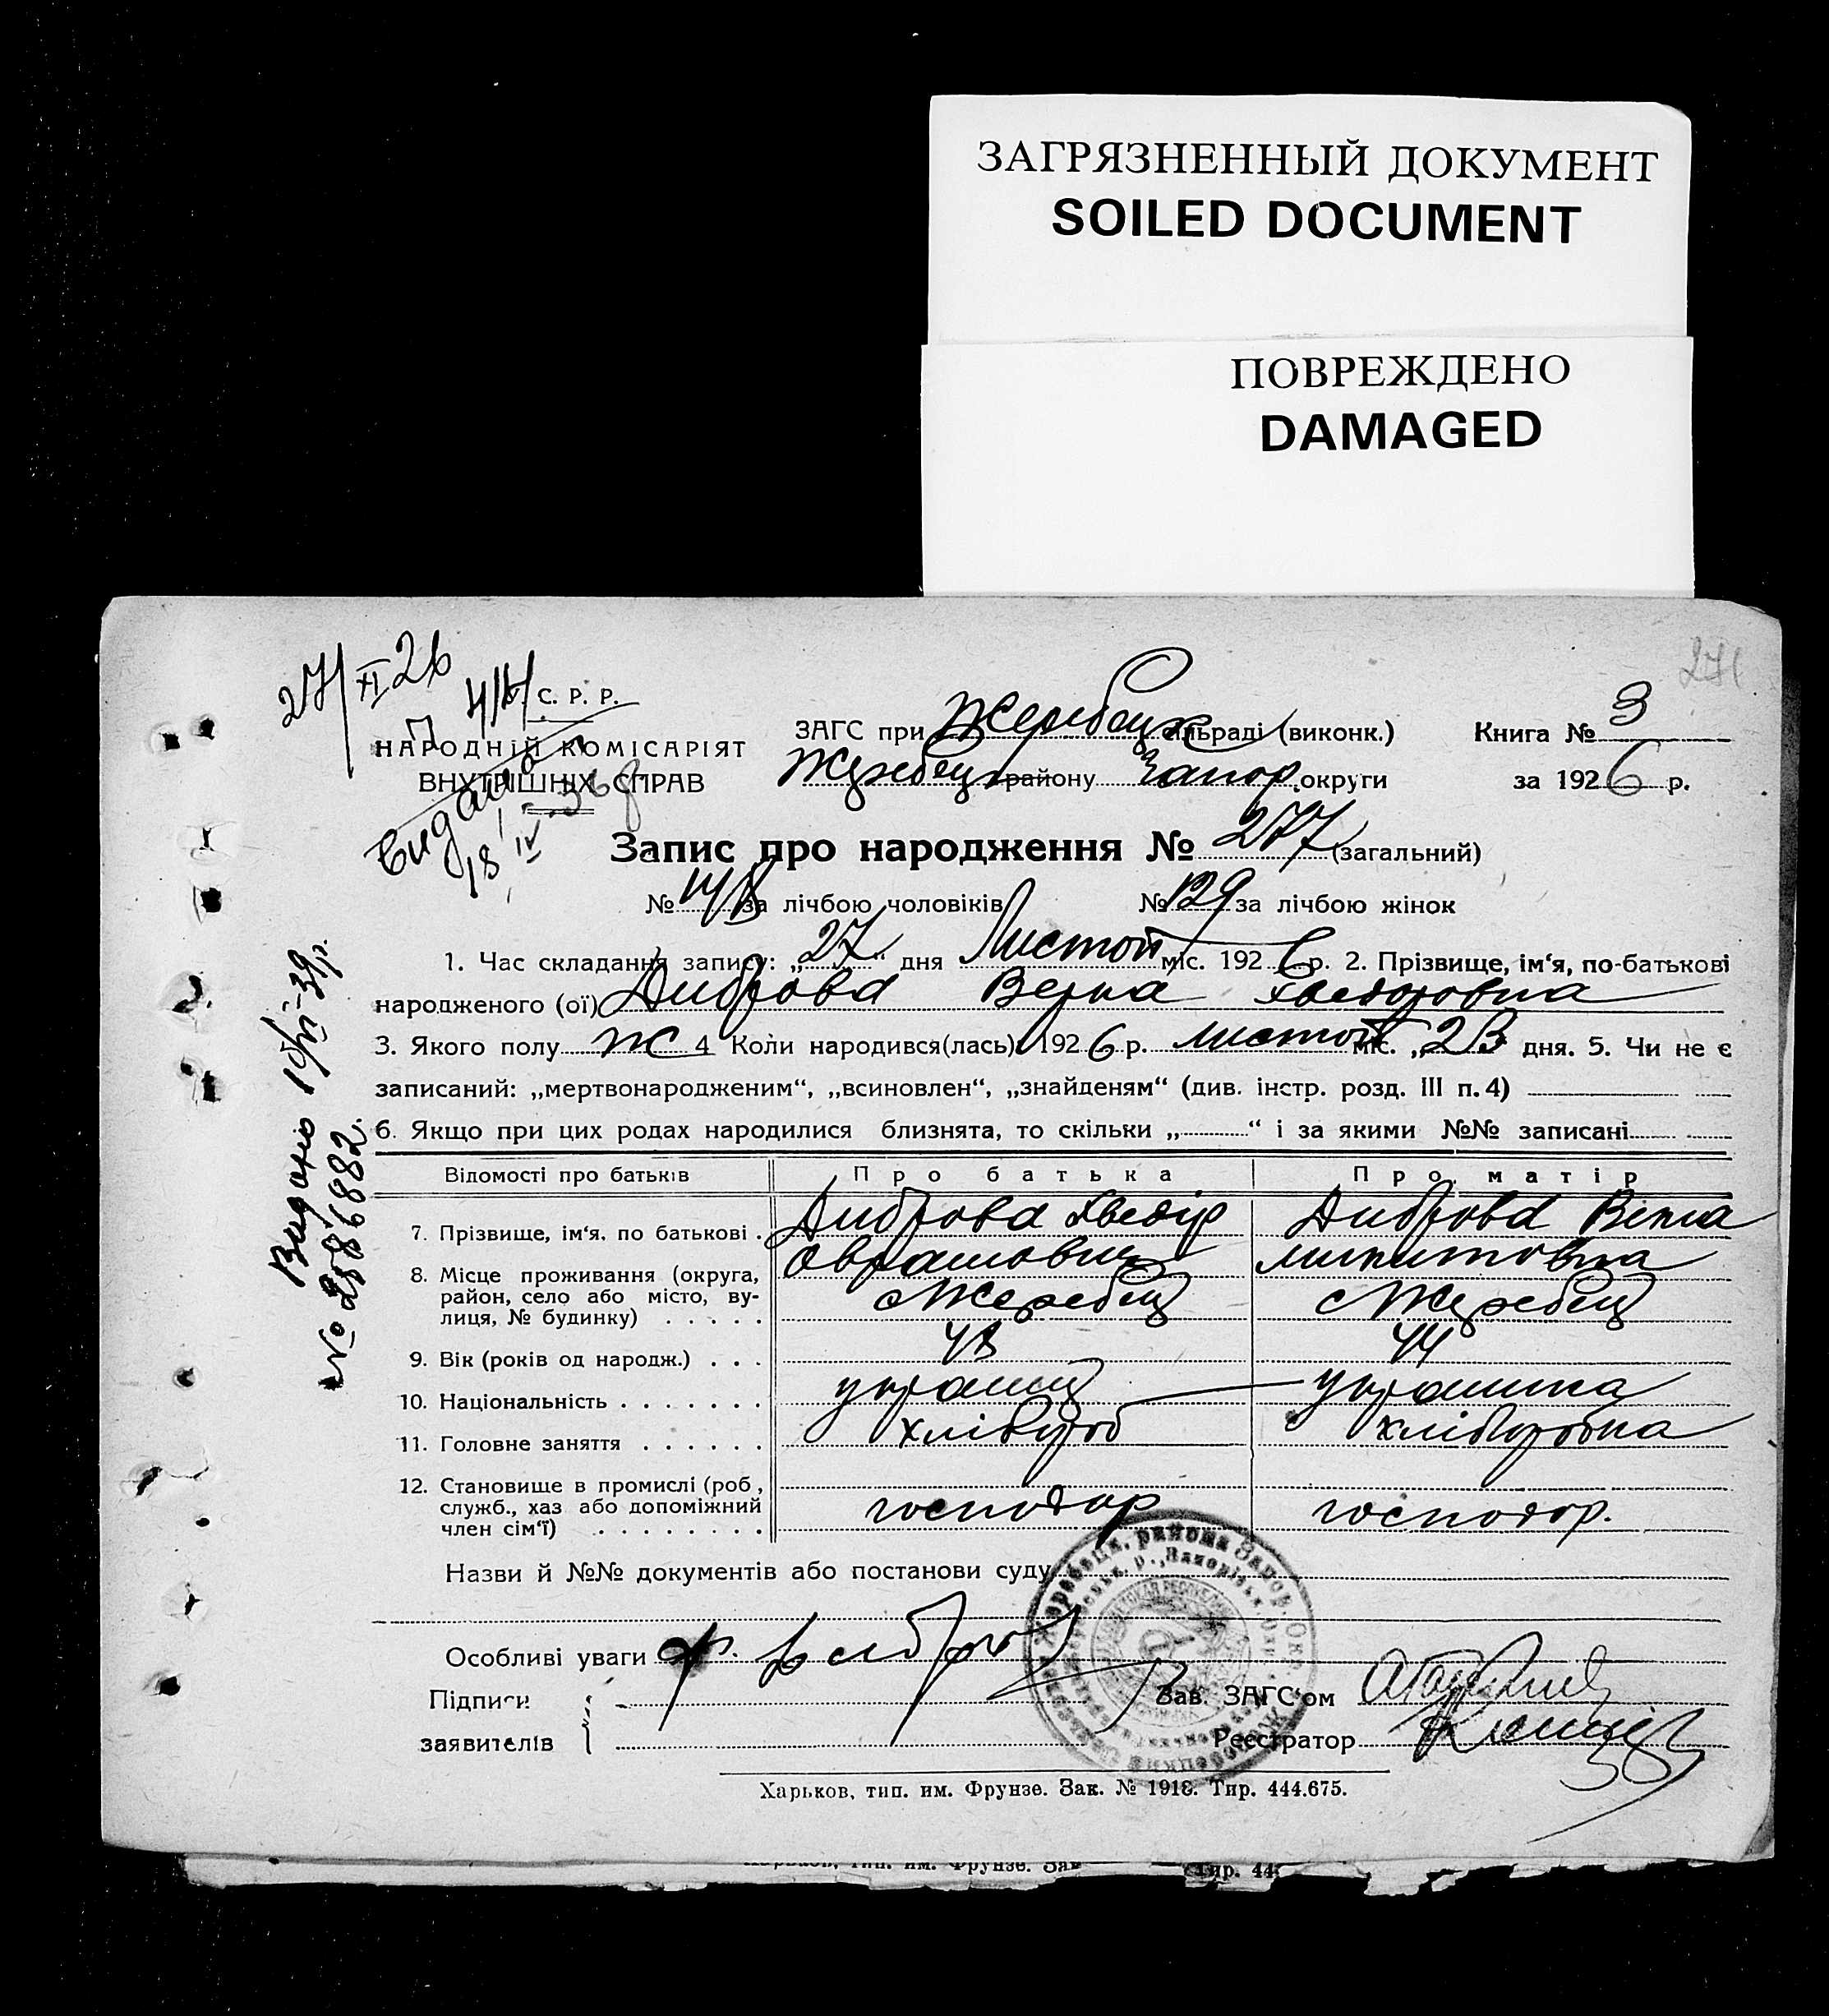 ЗАГРЯЗНЕННЫЙ ДОКУМЕНТ
SOILED DOCUMENT
ПОВРЕЖДЕНО
DAMAGED
271
27/XI 26
С. Р. Р.
НАРОДНІЙ КОМІСАРІЯТ
ВНУТРІШНІХ СПРАВ
видано
18/IV 36 р
ЗАГС при Жеребецк сільраді (виконк.) Книга № 3
Жеребец району Запор. округи за 1926 р.
Запис про народження № 277 (загальний)
№ 148 за лічбою чоловіків № 129 за лічбою жінок
1. Час складання запису: „27“ дня Листоп міс. 1926 р. 2. Прізвище, ім‘я, по-батькові
народженого (ої) Диброва Верка Хведоровна
3. Якого полу ж 4 Коли народився(лась) 1926 р. листоп міс. „23 дня. 5. Чи не є
записаний: „мертвонародженим“, „всиновлен“, „знайденям“ (див. інстр. розд. III п. 4)
6. Якщо при цих родах народилися близнята, то скільки „ “ і за якими №№ записані
Видано
№ 2886882.
Відомості про батьків Про батька Про матір
7. Прізвище, ім‘я, по батькові . Диброва Хведір Диброва
8. Місце проживання (округа,
район, село або місто, ву-
лиця, № будинку) . . . . . с Жеребец с Жеребец
9. Вік (років од народж.) . . . 43 44
10. Національність . . . . . . . українец українка
11. Головне заняття . . . . . . хлібороб хліборобка
12. Становище в промислі (роб,
служб., хаз або допоміжний
член сім‘ї) . . . . . . . . господар господар.
Назви й №№ документів або постанови суду
Особливі уваги
Підписи
заявителів
Зав. ЗАГС‘ом
Реєстратор
Харьков, тип. им. Фрунзе. Зак. № 1918. Тир. 444.675.